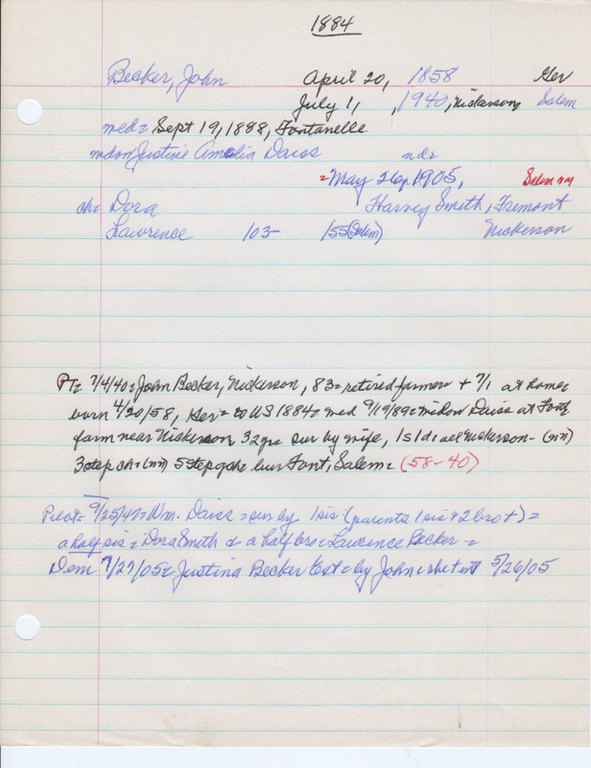 1884
Becker, John April 20, 1858 Ger
July 1, , 1940, Nickerson Salem
med= Sept 19, 1888, Fontanelle
mdsn Justine Amelia Daiss nds
=May 26, 1905, Salem nm
ch= Dora Harvey Smith, Fremont
Lawrence 103- 155(Salem) Nickerson
PT= 7/4/40=John Becker, Nickerson, 83=retired farmer + 7/1 at home=
born 4/20/58, Ger= to US 1884= med 9/19/89=widow Daiss at Font=
farm near Nickerson 32yrs sur by wife, 1s 1d= all Nickerson- (nn)
3step ch=(nn) 5step gch= bur Font, Salem= (58-40)
Pilot= 9/25/47=Wm. Daiss=sur by 1sis (parents 1sis+2bro+)=
a half sis= Dora Smith & a half bro=Lawrence Becker=
Dem 7/27/05= Justina Becker test= by John= she 5/26/05